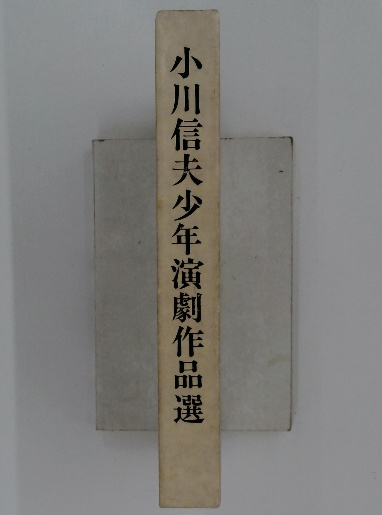 小川信夫少年演劇作品選